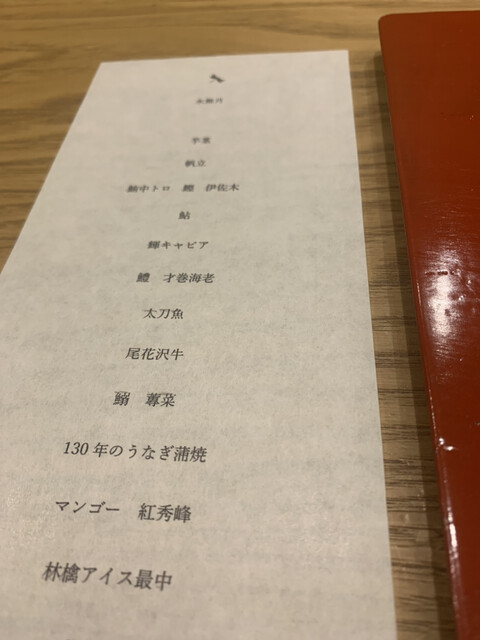 水無月
芋茎
帆立
鮪中トロ 鰹 伊佐木
鮎
輝キャビア
鱧 才巻海老
太刀魚
尾花沢牛
鰯 蓴菜
130年のうなぎ蒲焼
マンゴー 紅秀峰
林檎アイス最中